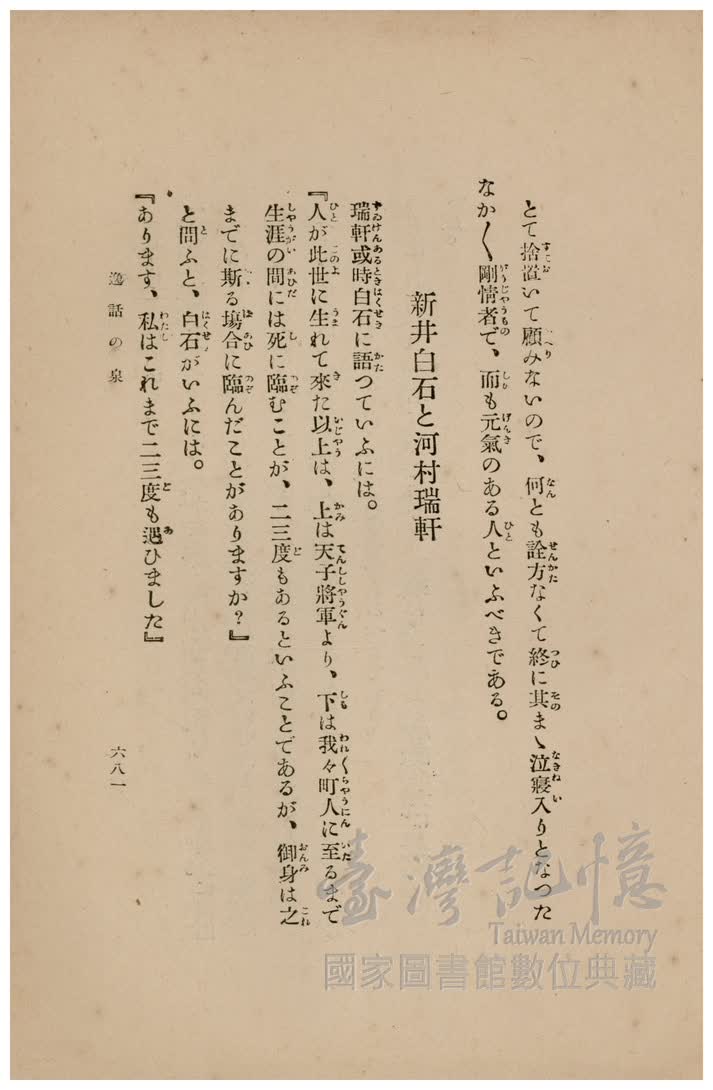 とて捨置いて顧みないので、何とも詮方なくて終に其まゝ泣寢入りとなつた
なか〱剛情者で、而も元氣のある人といふべきである。
新井白石と河村瑞軒
瑞軒或時白石に語つていふには。
『人が此世に生れて來た以上は、上は天子將軍より、下は我々町人に至るまで
生涯の間には死に臨むことが、二三度もあるといふことであるが、御身は之
までに斯る塲合に臨んだことがありますか？』
と問ふと、白石がいふには。
『あります、私はこれまで二三度も遇ひました』
逸話の泉
六八一
臺灣記憶
Taiwan Memory
國家圖書館數位典藏